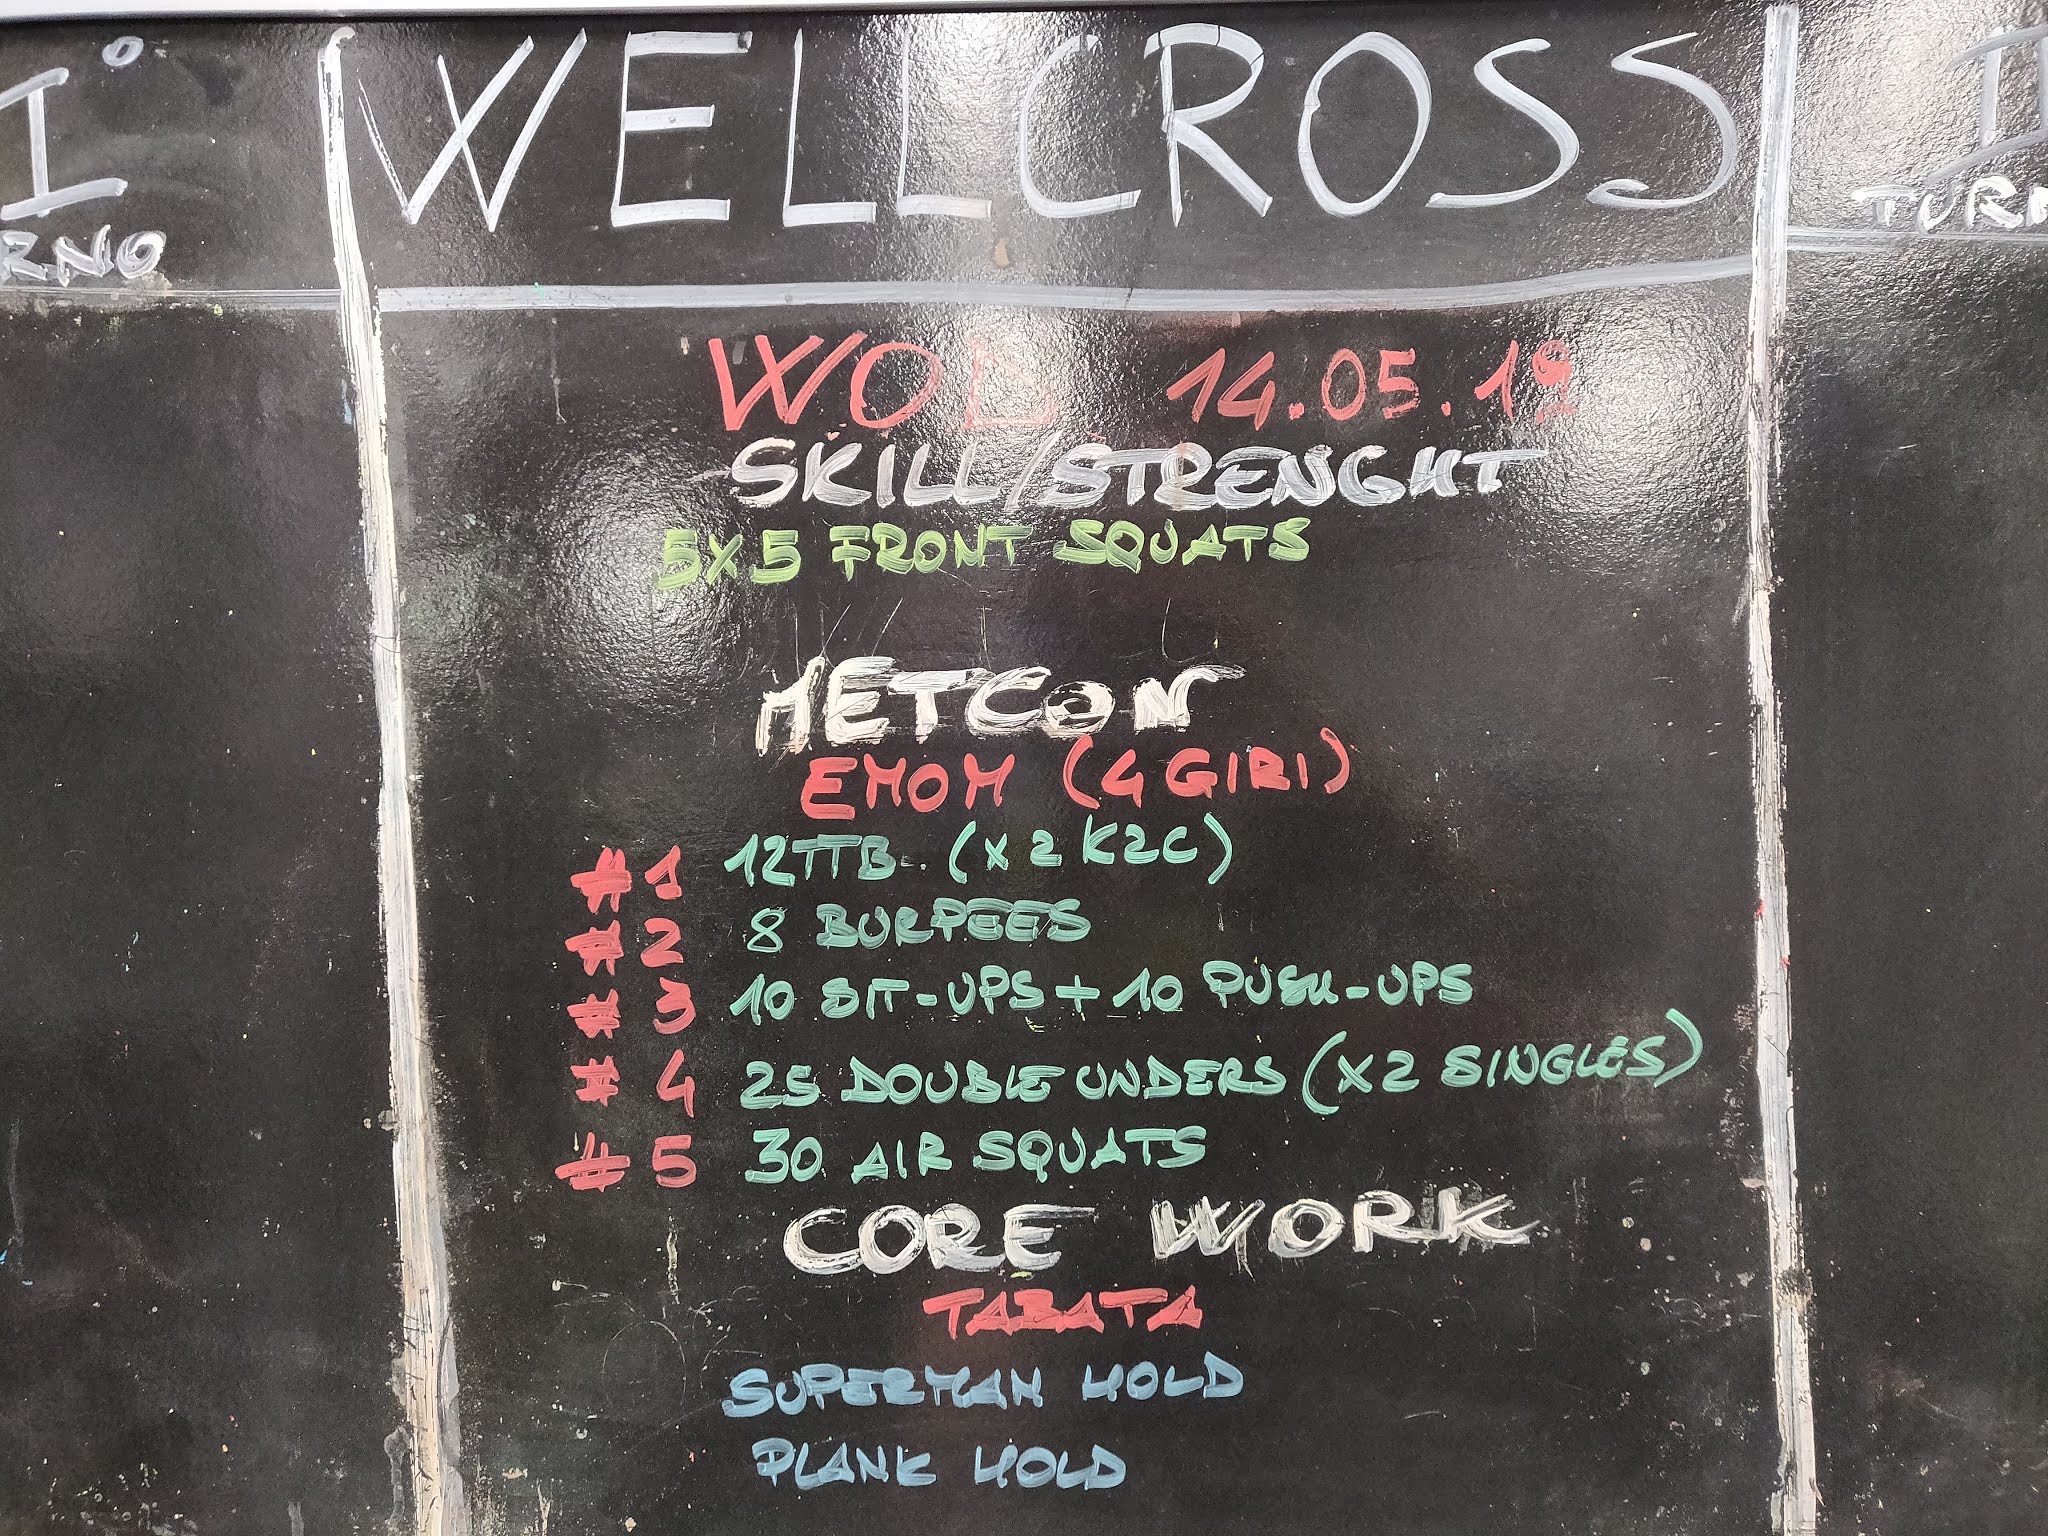 I°
RNO
WELLCROSS
II
TURN
WOD 14.05.19
SKILL/STRENGHT
5X5 FRONT SQUATS
METCON
EMOM (4 GIRI)
#1 12TTB. (X 2 K2C)
#2 8 BURPEES
#3 10 SIT-UPS + 10 PUSH-UPS
#4 25 DOUBLE UNDERS (X2 SINGLES)
#5 30 AIR SQUATS
CORE WORK
TABATA
SUPERMAN HOLD
PLANK HOLD